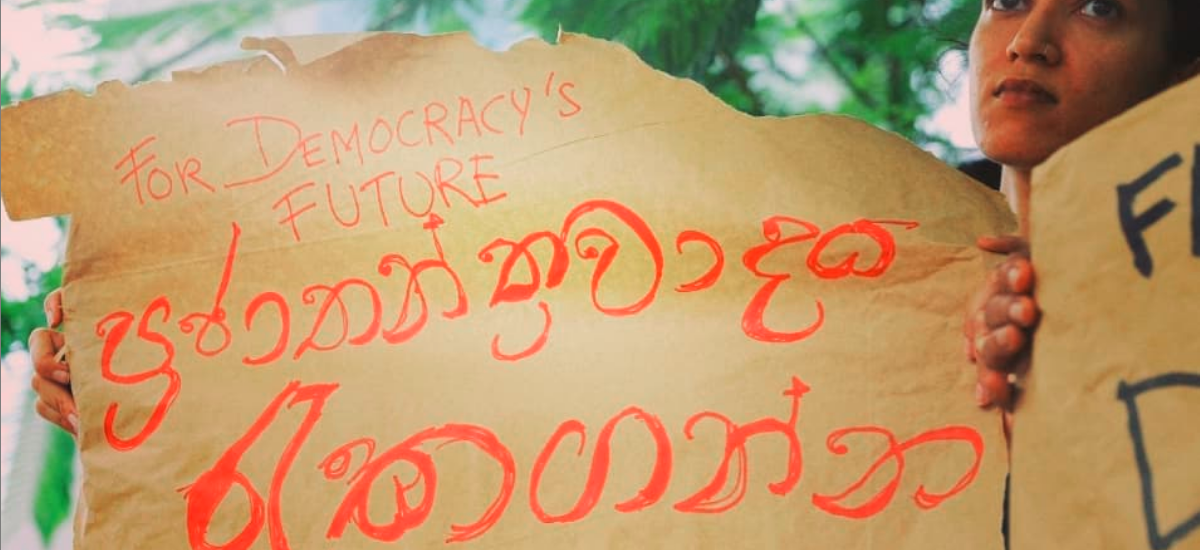 FOR DEMOCRACY'S
FUTURE
ප්‍රජාතන්ත්‍රවාදය
රැකගන්න